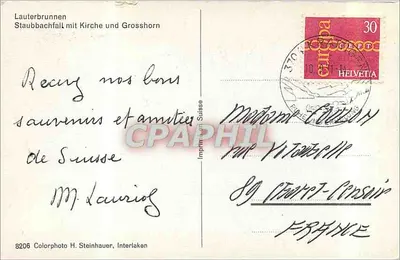 Lauterbrunnen
Staubbachfall mit Kirche und Grosshorn
Recevez nos bons
souvenirs et amitiés
de Suisse
M. Lauriol
8206 Colorphoto H. Steinhauer, Interlaken
Imprimé en Suisse
CPAPHIL
europa
CEPT
30
HELVETIA
Madame
rue
89 Censoir
FRANCE